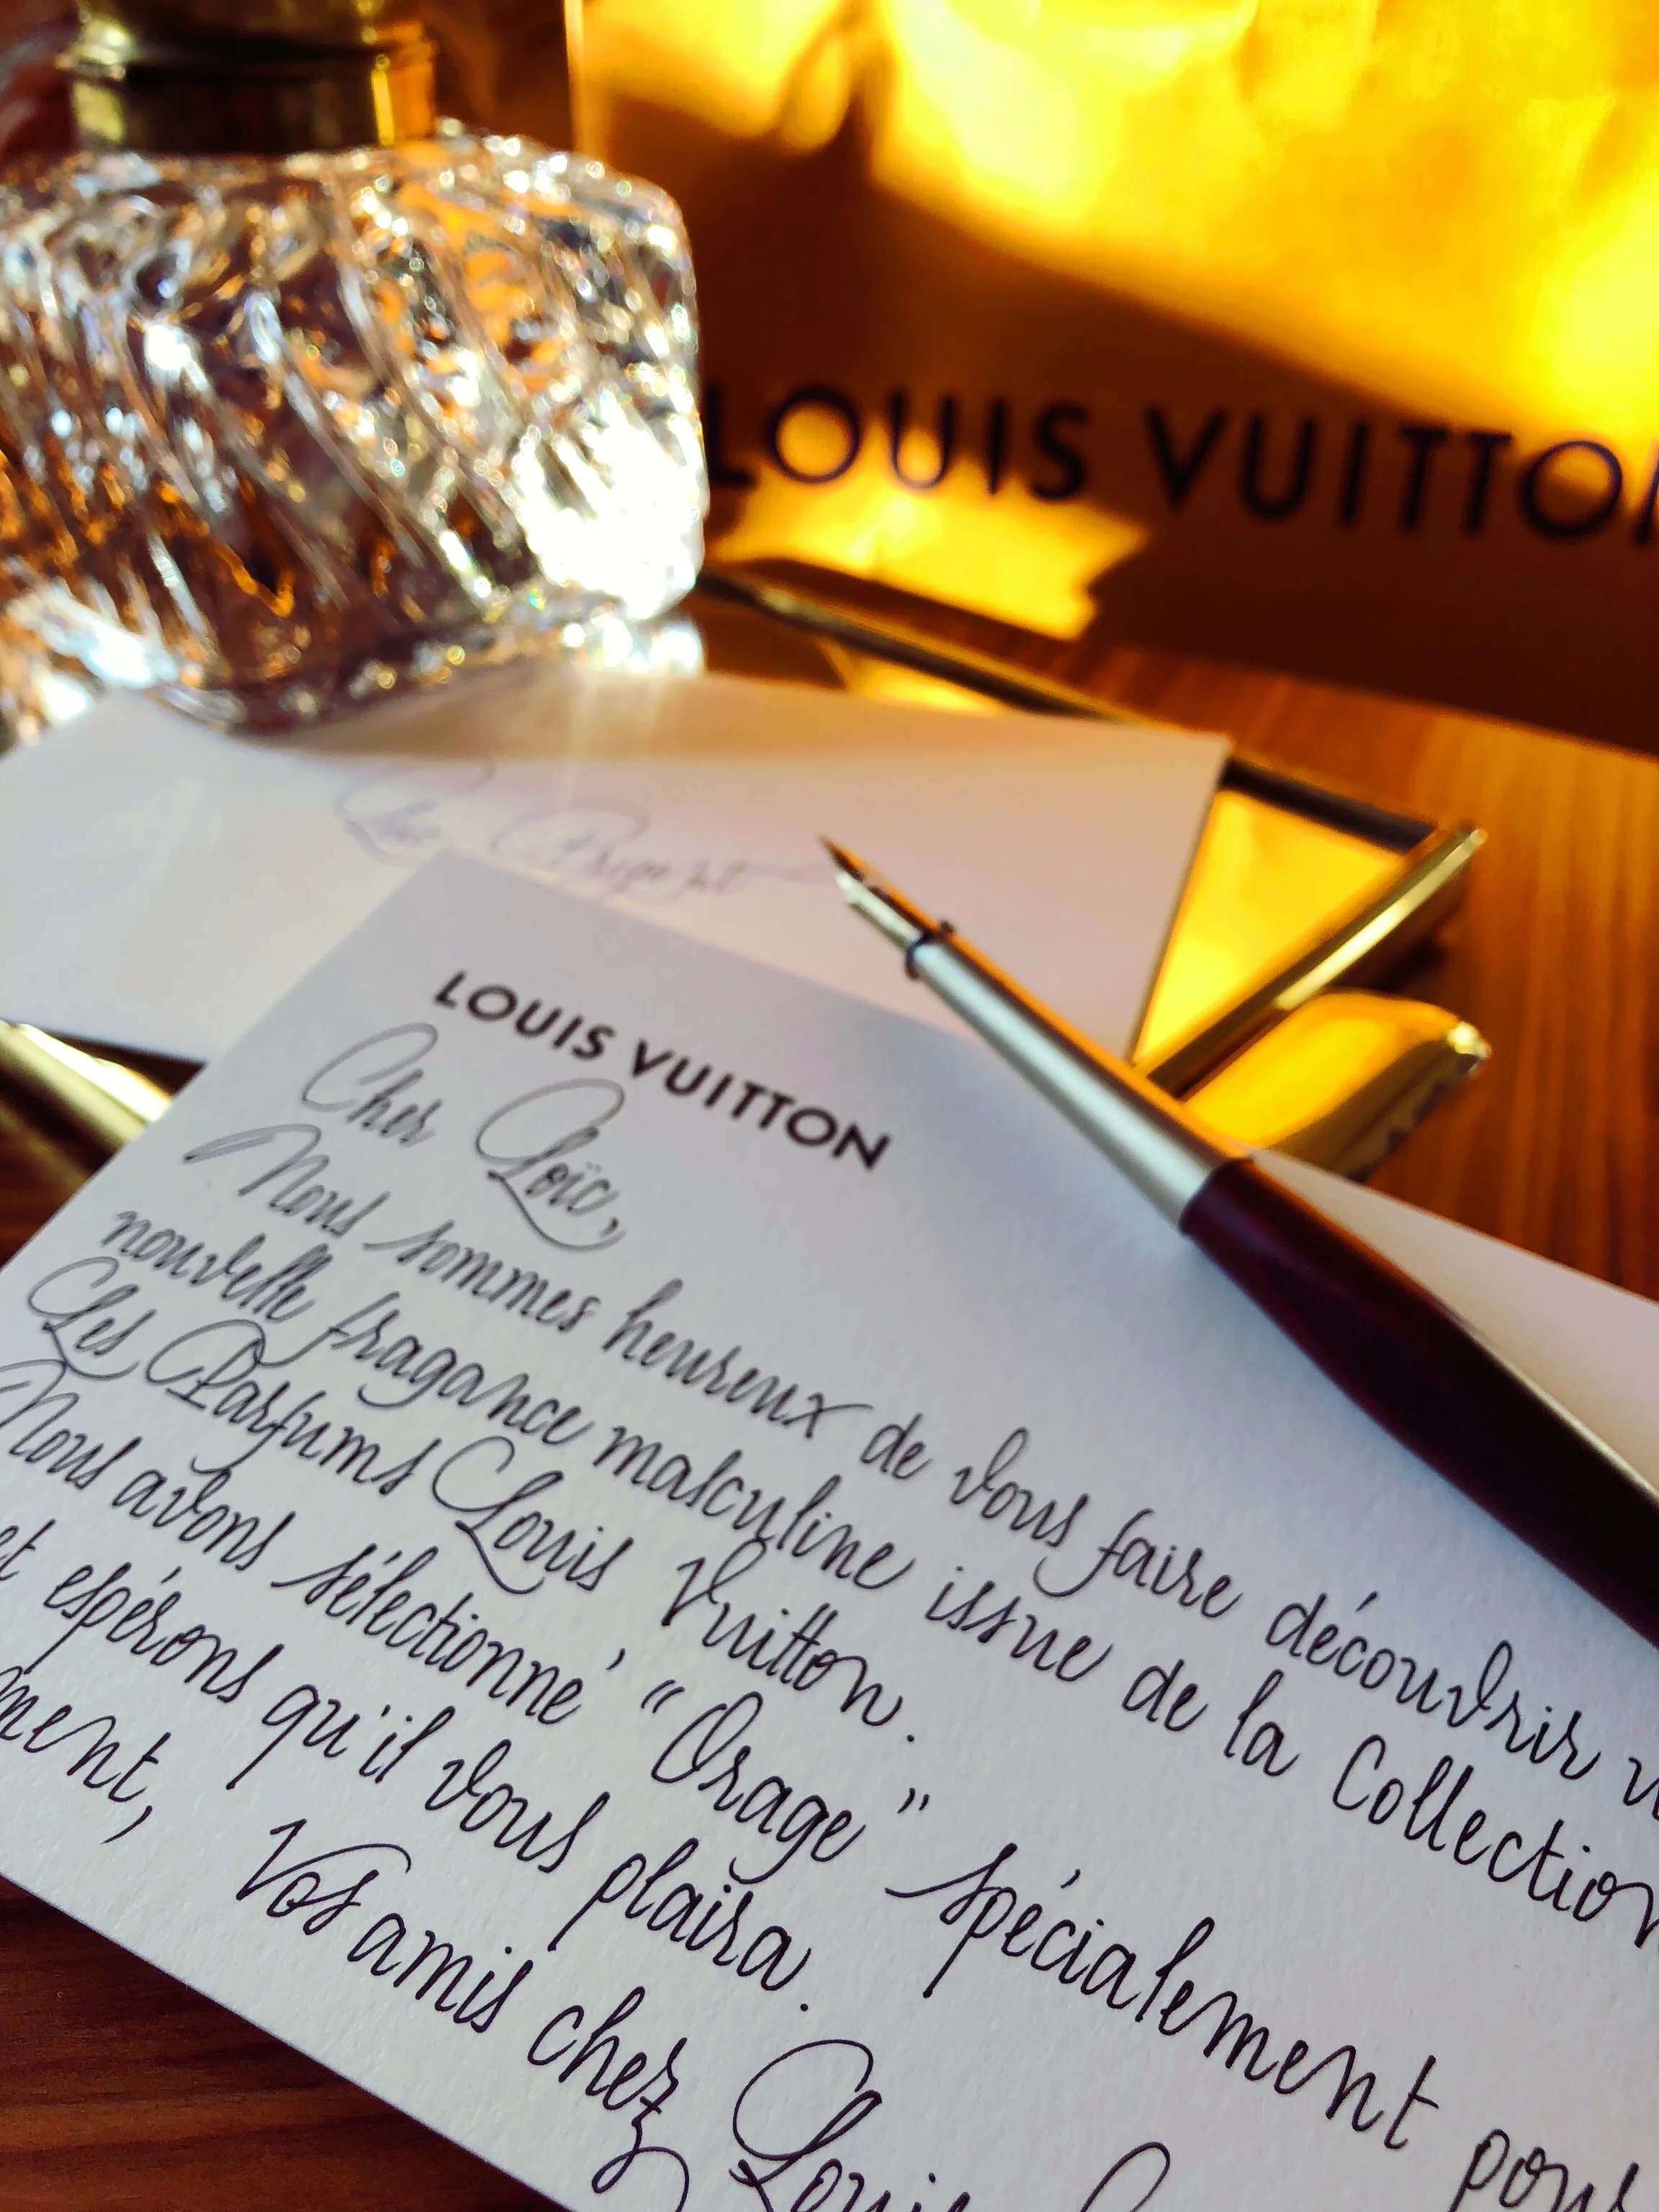 LOUIS VUITTON
LOUIS VUITTON
Cher Loïc,
Nous sommes heureux de vous faire découvrir
nouvelle fragance masculine issue de la Collection
Les Parfums Louis Vuitton.
Nous avons sélectionné "Orage" spécialement pour
et espérons qu'il vous plaira.
ment,
Vos amis chez Louis